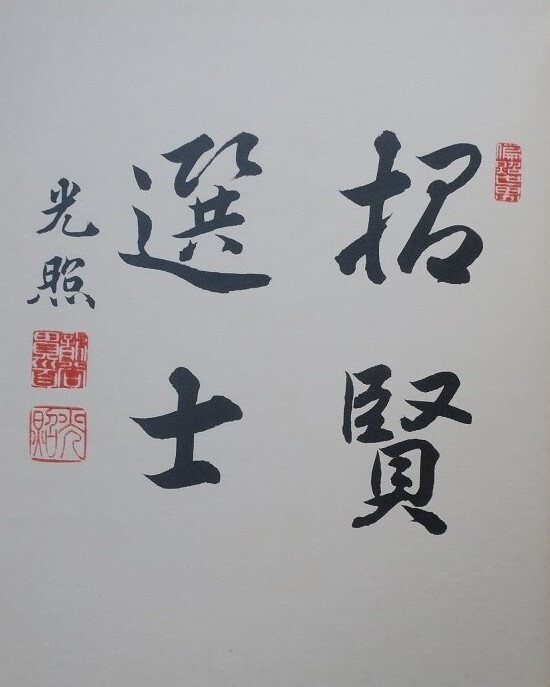 招賢
選士
光照